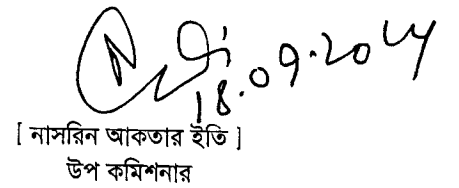 18.09.2024
[ নাসরিন আকতার ইতি ]
উপ কমিশনার